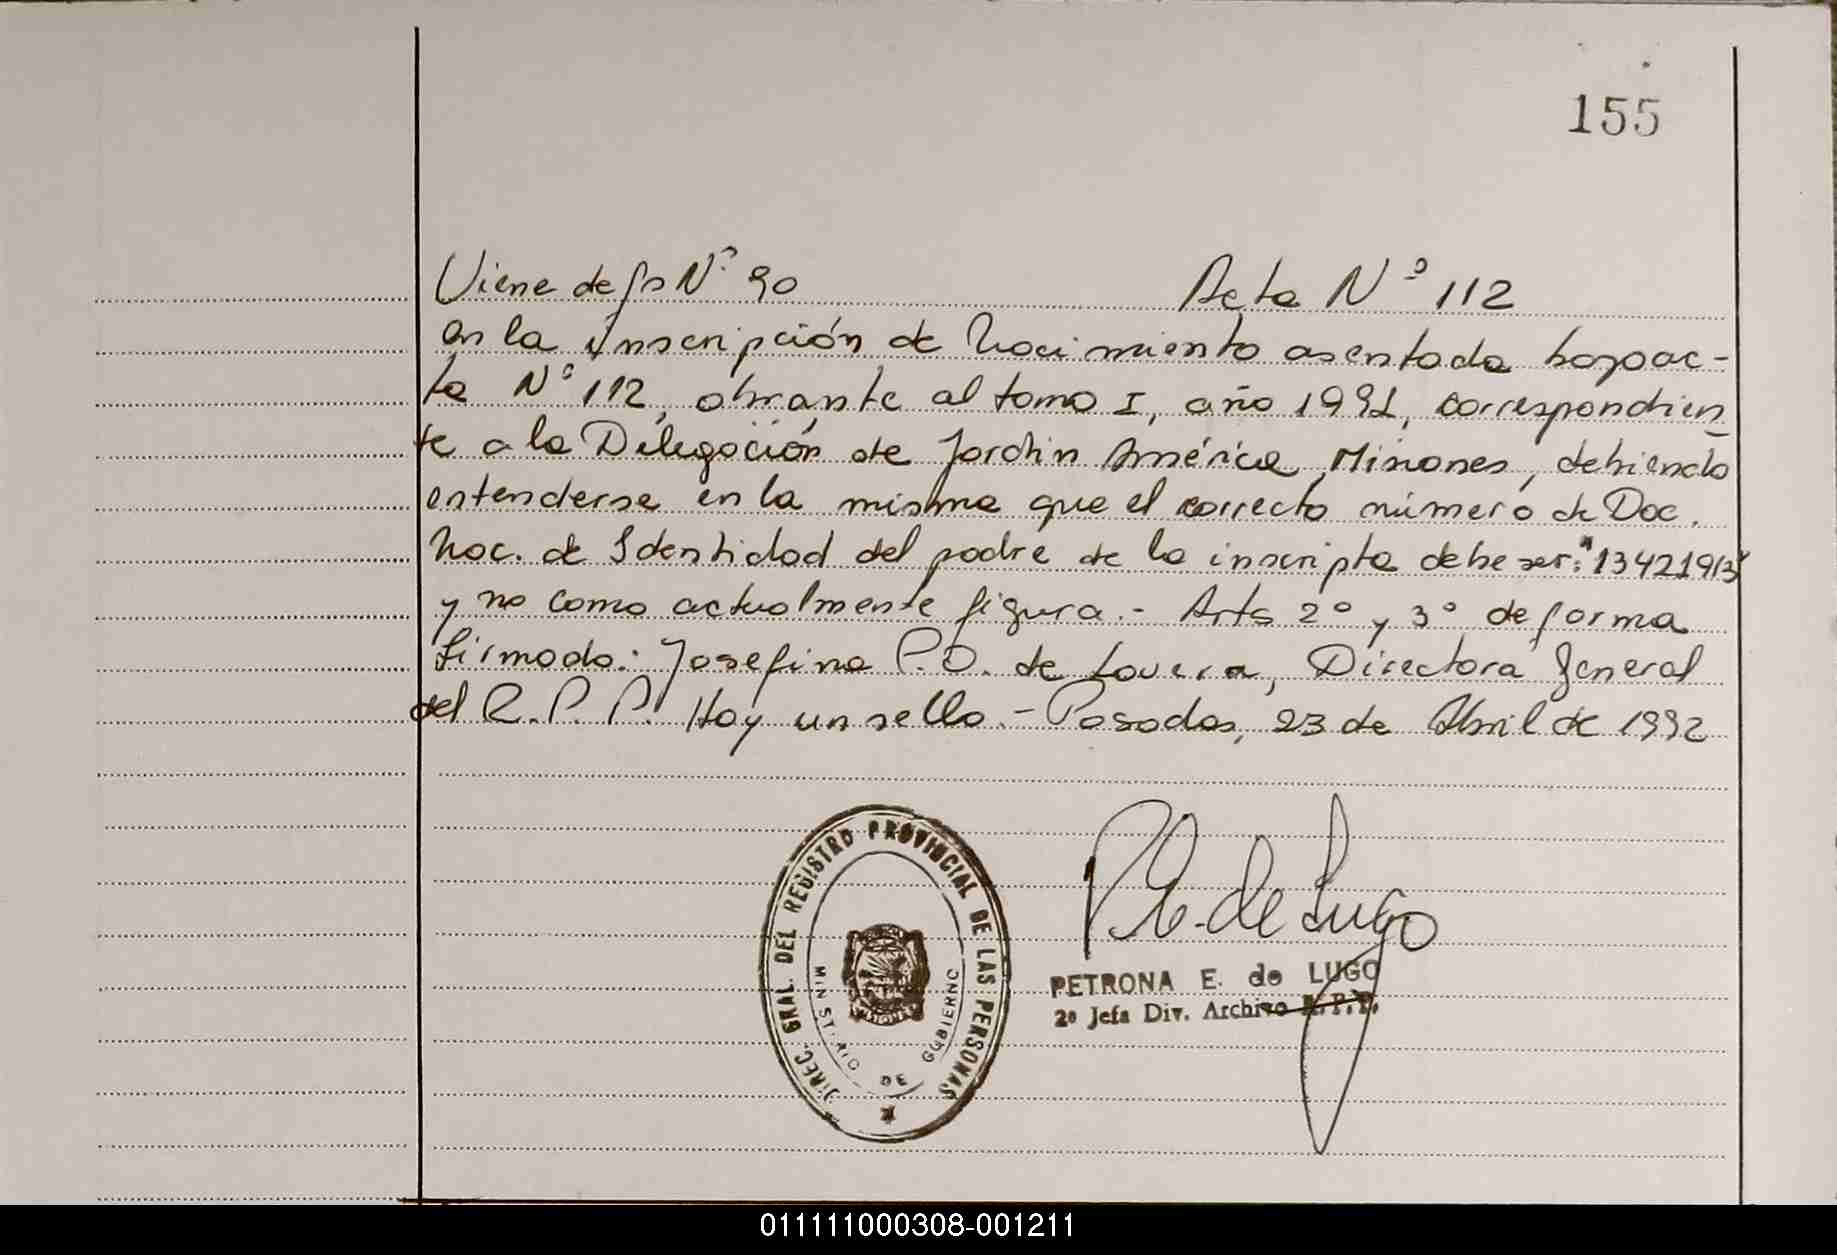 155
Viene de fs Nº 90 Acta Nº 112
en la inscripción de Nacimiento asentada bajo ac-
ta Nº 112, obrante al tomo I, año 1991, correspondien
te a la Delegación de Jardin América, Misiones, debiendo
entenderse en la misma que el correcto número de Doc.
Nac. de Identidad del padre de la inscripta debe ser: "13421913"
y no como actualmente figura.- Arts 2º y 3º de forma
firmado: Josefina P.O. de Lovera, Directora General
del R.P.P. Hay un sello.- Posadas, 23 de Abril de 1992
DIREC. GRAL. DEL REGISTRO PROVINCIAL DE LAS PERSONAS
MINISTERIO DE GOBIERNO
P.E. de Lugo
PETRONA E. de LUGO
2º Jefa Div. Archivo R.P.P.
011111000308-001211